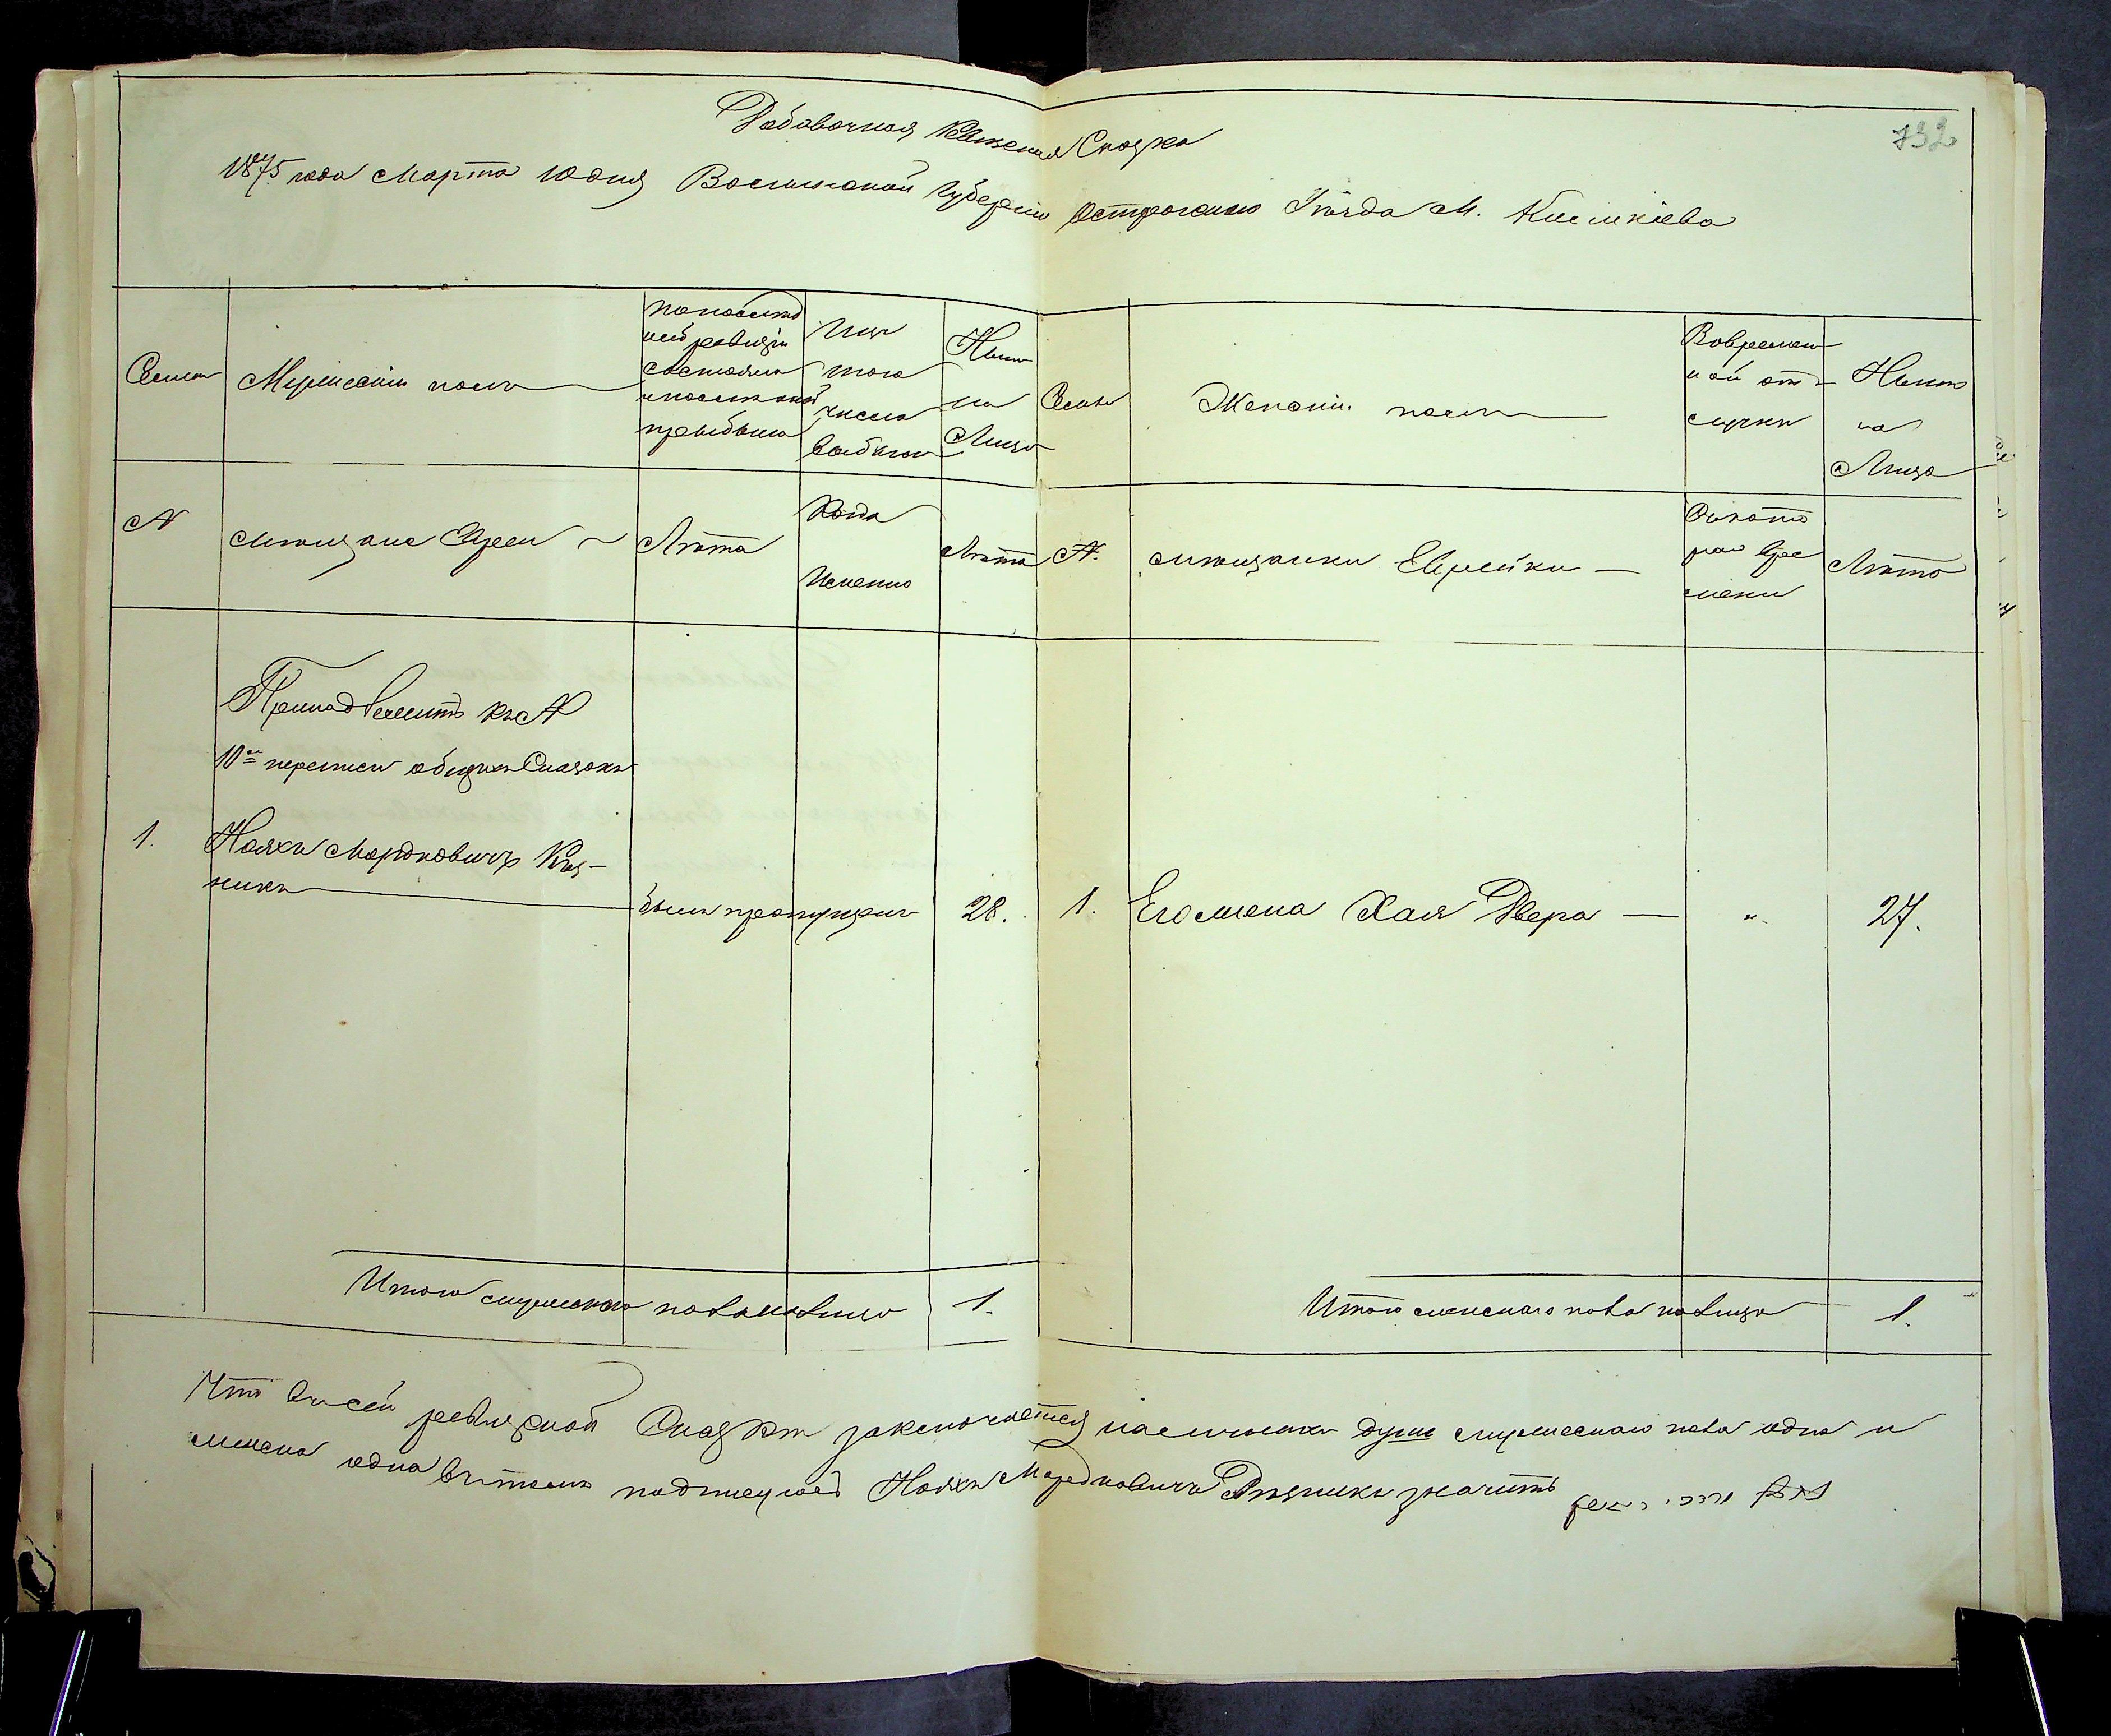 732
Добавочная Ревизская Сказка
1875 года Марта 10 дня Волынской Губерніи Острожскаго Уѣзда М.
Семьи
Мужескій полъ
По последней ревизіи состояло и после оной прибыло
Изъ того числа выбыло
Ныне на Лицо
Семьи
Женскій полъ
Во временной отлучки
Ныне на Лицо
№
мѣщане Евреи
Лѣта
Когда Именно
Лѣта
№.
мѣщанки Еврейки —
Съ котораго времени
Лѣта
Принадлежитъ къ №
10й переписи общихъ Сказокъ
1. Нояхъ Мордковичъ Рѣз-
никъ — былъ пропущенъ 28.
1. Его жена Хая Двера — „ 27.
Итого мужескаго пола на лицо 1.
Итого женскаго пола на лицо 1.
Что въ сей ревизской Сказкѣ заключается наличныхъ душъ мужескаго пола одна и
женска одна въ томъ подписуюсь Нояхъ Мордковичъ Рѣзникъ значитъ